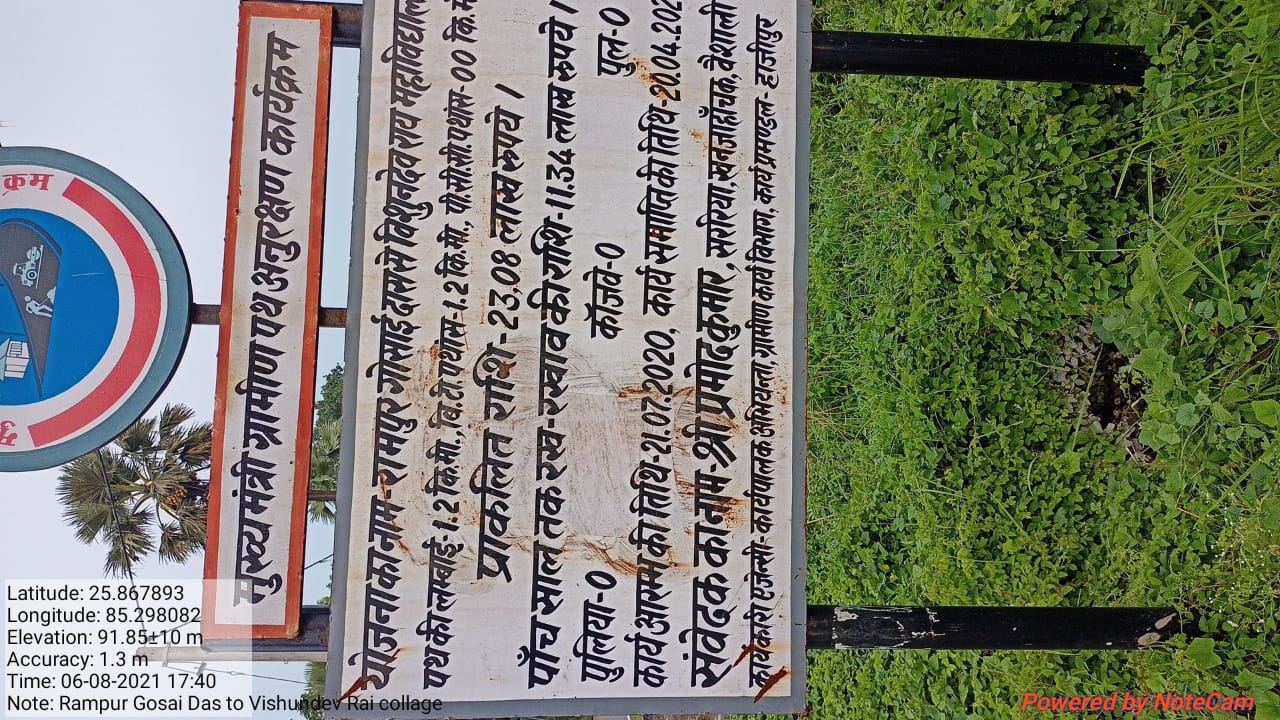 क्रम
मुख्य मंत्री ग्रामीण पथ अनुरक्षण कार्यक्रम
योजना का नाम-रामपुर गोसाई दास से विशुनदेव राय महाविद्यालय
पथ की लम्बाई:-1.2 कि.मी., वि.टी.पथांस-1.2 कि.मी., पी.सी.सी.पथांस-00 कि.मी
प्राकलित राशि-23.08 लाख रुपये।
पाँच साल तक रख-रखाव की राशि-11.34 लाख रुपये।
पुलिया-0 कॉजवे-0 पुल-0
कार्य आरम्भ की तिथि-21.07.2020, कार्य समाप्ति की तिथि-20.04.202
संवेदक का नाम-श्री प्रमोद कुमार, सररिया, खनजाहाँचक, वैशाली
कार्यकारी एजेन्सी-कार्यपालक अभियन्ता, ग्रामीण कार्य विभाग, कार्य प्रमण्डल-हाजीपुर
Latitude: 25.867893
Longitude: 85.298082
Elevation: 91.85±10 m
Accuracy: 1.3 m
Time: 06-08-2021 17:40
Note: Rampur Gosai Das to Vishundev Rai collage
Powered by NoteCam